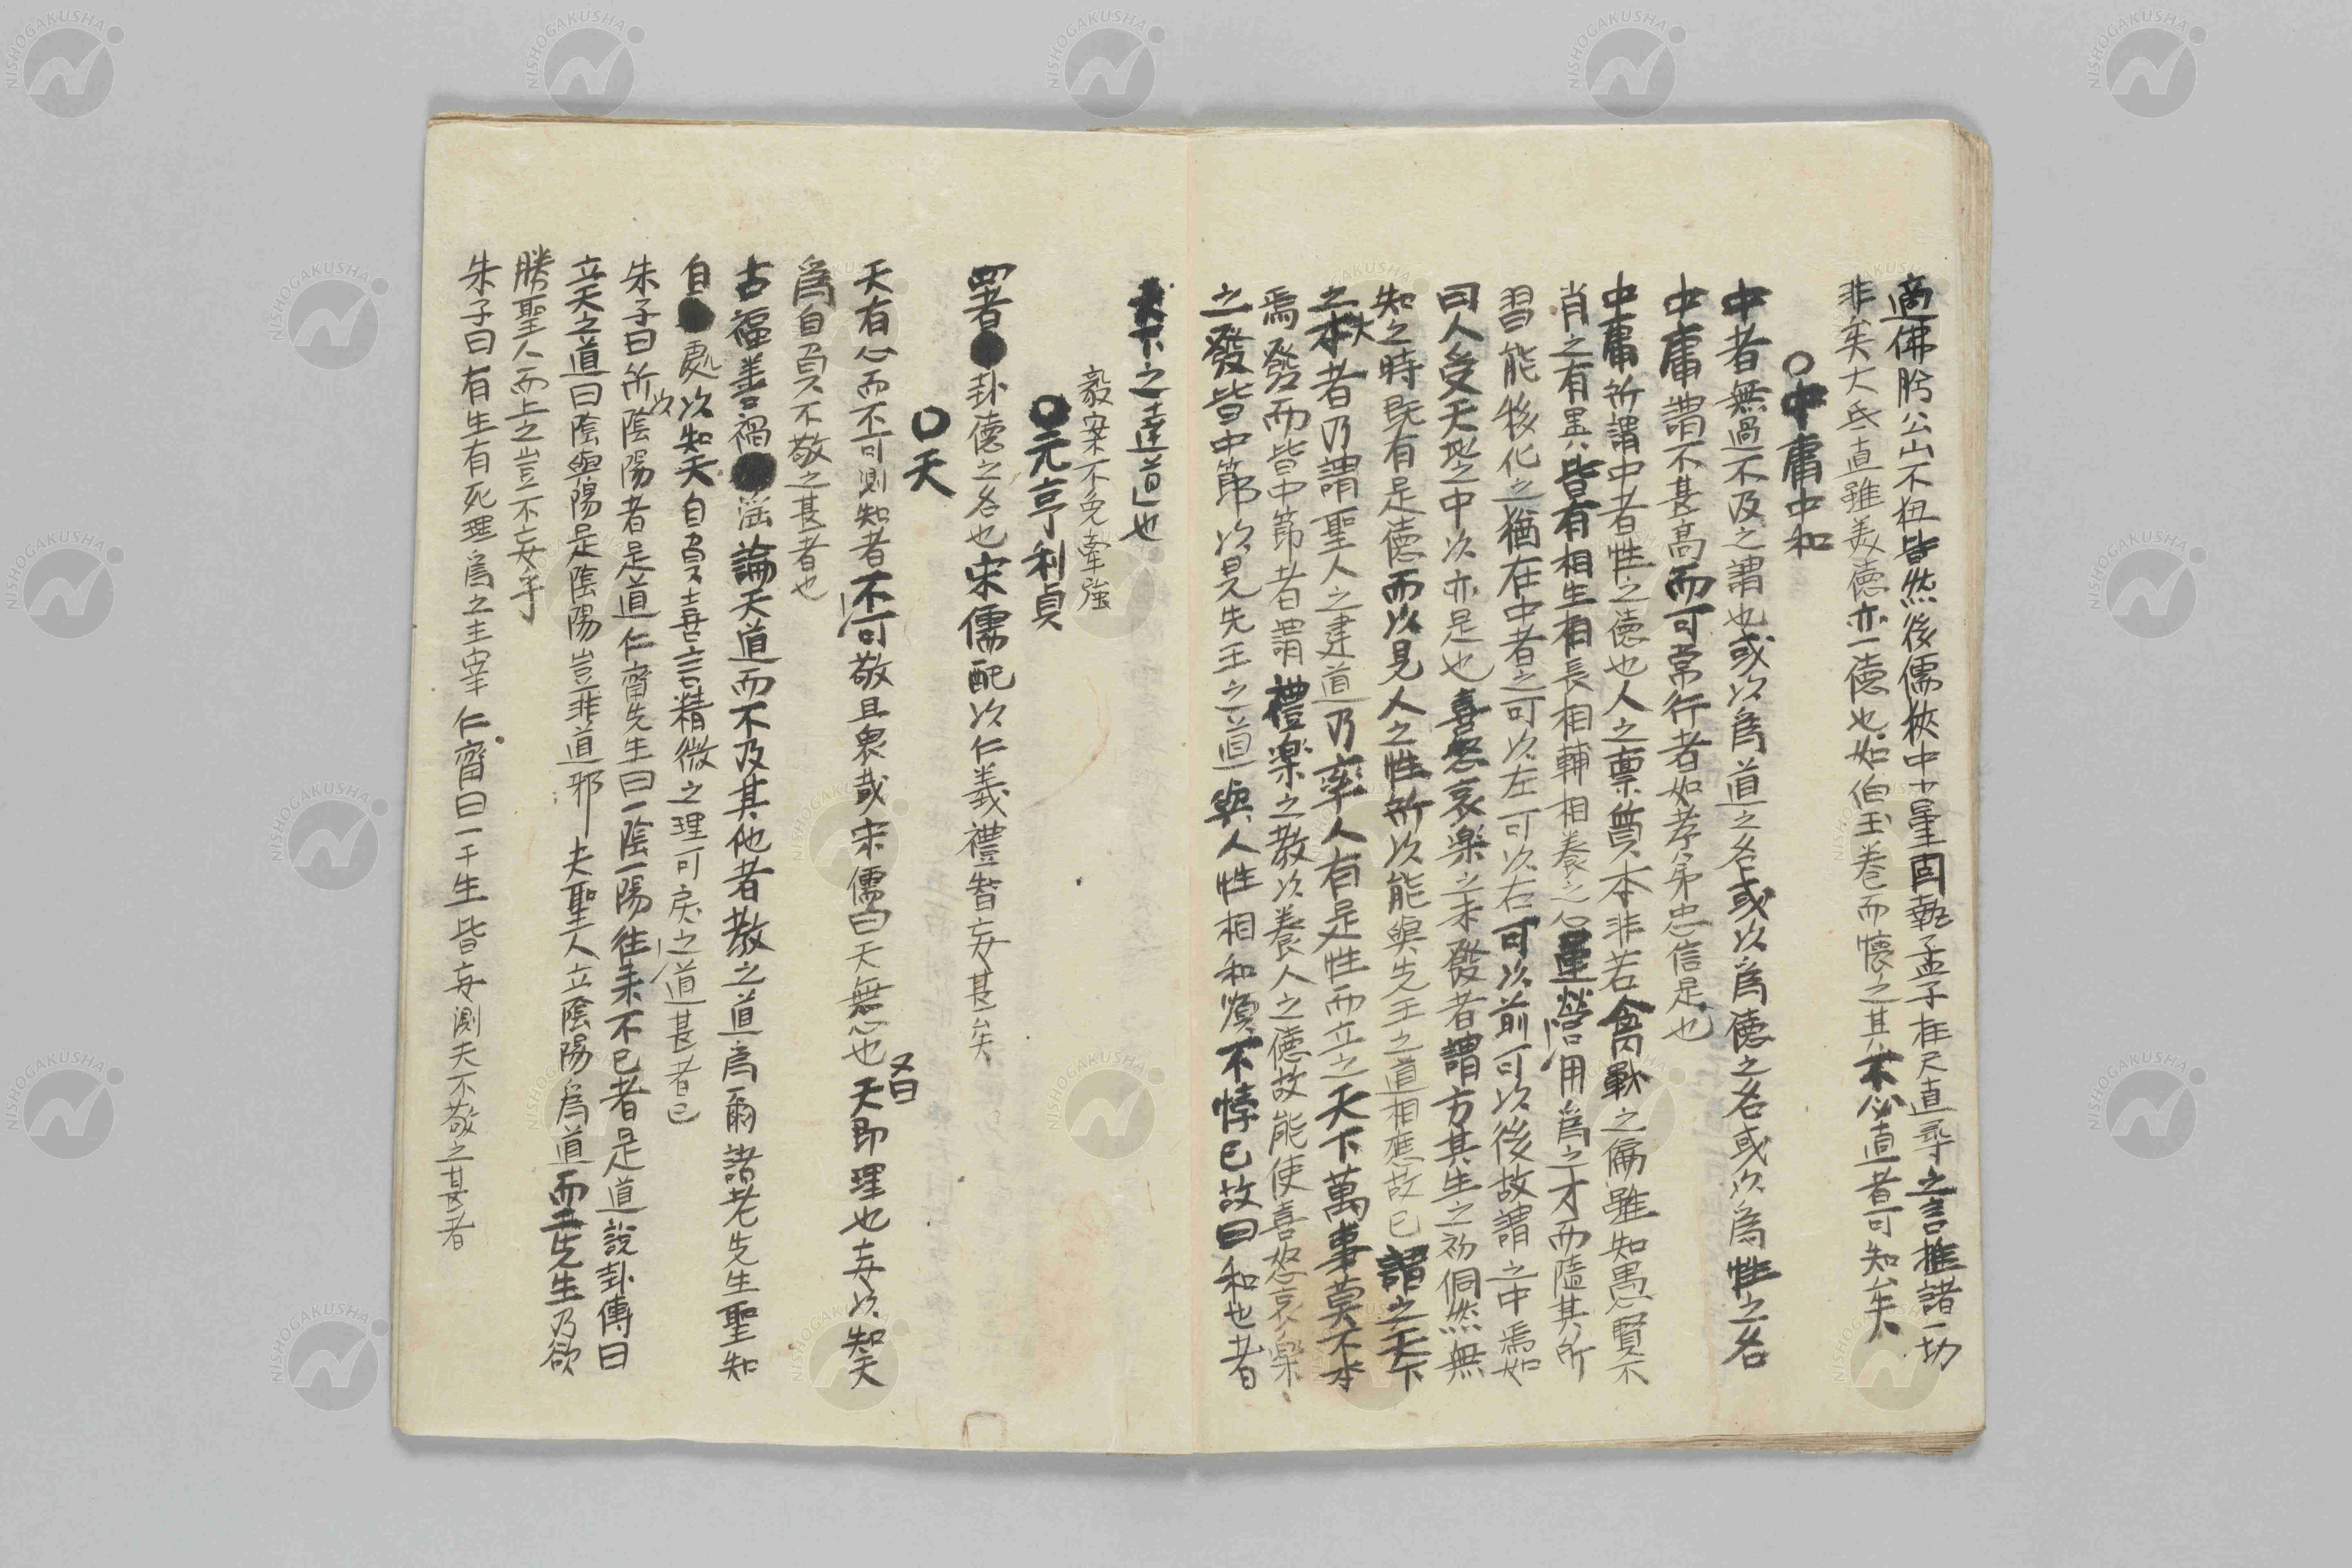 適佛肸公山不狃皆然後儒狹中小量固執孟子枉尺直尋之言推諸一切
非矣大氐直雖美德亦一德也如伯玉卷而懷之其不必直者可知矣
○中庸中和
中者無過不及之謂也或以爲道之名或以爲德之名或以爲性之名
中庸謂不甚高而可常行者如孝弟忠信是也
中庸所謂中者性之德也人之稟質本非若禽獸之偏雖知愚賢不
肖之有異皆有相生相長相輔相養之心運營用爲之才而隨其所
習能移化之猶在中者之可以左可以右可以前可以後故謂之中焉如
曰人受天地之中以亦是也喜怒哀樂之未發者謂方其生之初侗然無
知之時既有是德而以見人之性所以能與先王之道相應故已謂之天下
之大本者乃謂聖人之建道乃率人有是性而立之天下萬事莫不本
焉發而皆中節者謂禮樂之教以養人之德故能使喜怒哀樂
之發皆中節以見先王之道與人性相和順不悖已故曰和也者
天下之達道也
毅案不免牽強
○元亨利貞
四者卦德之名也宋儒配以仁義禮智妄甚矣
○天
天有心而不可測知者不可敬且畏哉宋儒曰天無心也又曰天即理也妄以知天
爲自負不敬之甚者也
古福善禍淫論天道而不及其他者教之道爲爾諸老先生聖知
自處以知天自負喜言精微之理可戻之道甚者已
朱子曰所以陰陽者是道仁齋先生曰一陰一陽往来不已者是道說卦傳曰
立天之道曰陰與陽是陰陽豈非道邪夫聖人立陰陽爲道而二先生乃欲
勝聖人而上之豈不妄乎
朱子曰有生有死理爲之主宰仁齋曰一于生皆妄測天不敬之甚者
NISHOGAKUSHA